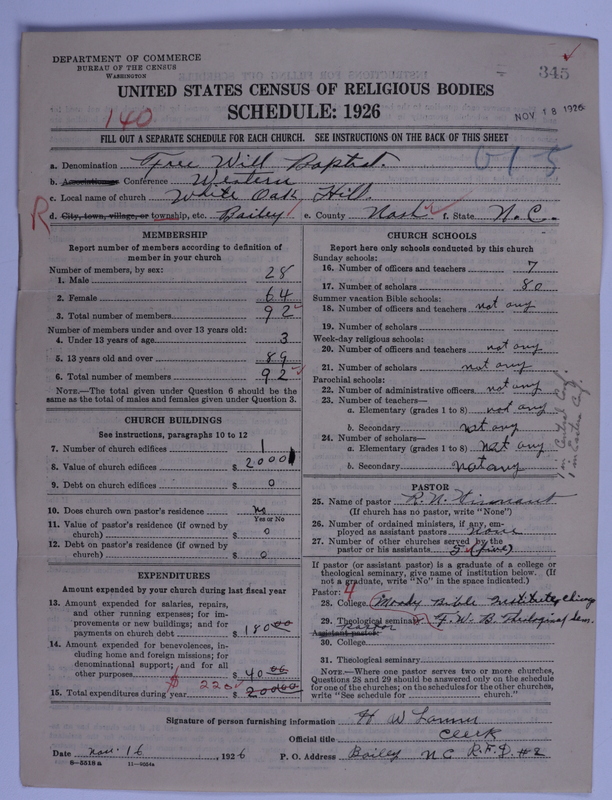 DEPARTMENT OF COMMERCE
BUREAU OF THE CENSUS
WASHINGTON
345
UNITED STATES CENSUS OF RELIGIOUS BODIES
SCHEDULE: 1926
140
NOV 18 1926
FILL OUT A SEPARATE SCHEDULE FOR EACH CHURCH. SEE INSTRUCTIONS ON THE BACK OF THIS SHEET
a. Denomination Free Will Baptist.
015
b. Associational Conference Western
c. Local name of church White Oak Hill.
R
d. City, town, village, or township, etc. Bailey e. County Nash f. State N.C.
MEMBERSHIP
Report number of members according to definition of
member in your church
Number of members, by sex:
1. Male 28
2. Female 64
3. Total number of members 92
Number of members under and over 13 years old:
4. Under 13 years of age 3
5. 13 years old and over 89
6. Total number of members 92
NOTE.—The total given under Question 6 should be
the same as the total of males and females given under Question 3.
CHURCH BUILDINGS
See instructions, paragraphs 10 to 12
7. Number of church edifices 1
8. Value of church edifices $ 2000
9. Debt on church edifices $ 0
10. Does church own pastor's residence No
Yes or No
11. Value of pastor's residence (if owned by
church) $ 0
12. Debt on pastor's residence (if owned by
church) $ 0
EXPENDITURES
Amount expended by your church during last fiscal year
13. Amount expended for salaries, repairs,
and other running expenses; for im-
provements or new buildings; and for
payments on church debt $ 180 00
14. Amount expended for benevolences, in-
cluding home and foreign missions; for
denominational support; and for all
other purposes $ 40 00
$ 220
15. Total expenditures during year $ 200 00
CHURCH SCHOOLS
Report here only schools conducted by this church
Sunday schools:
16. Number of officers and teachers 7
17. Number of scholars 80
Summer vacation Bible schools:
18. Number of officers and teachers not any
19. Number of scholars
Week-day religious schools:
20. Number of officers and teachers not any
21. Number of scholars not any
Parochial schools:
22. Number of administrative officers not any
23. Number of teachers—
a. Elementary (grades 1 to 8) not any
b. Secondary not any
24. Number of scholars—
a. Elementary (grades 1 to 8) not any
b. Secondary not any
1 in Central Conf.
1 in Eastern Conf.
PASTOR
25. Name of pastor R. N.
(If church has no pastor, write "None")
26. Number of ordained ministers, if any, em-
ployed as assistant pastors none
27. Number of other churches served by the
pastor or his assistants 5 (five)
If pastor (or assistant pastor) is a graduate of a college or
theological seminary, give name of institution below. (If
not a graduate, write "No" in the space indicated.)
Pastor: 4
28. College Moody Bible Institute
29. Theological seminary F. W. B. Theological Sem.
Assistant pastor: pastor
30. College
31. Theological seminary
NOTE.—Where one pastor serves two or more churches,
Questions 28 and 29 should be answered only on the schedule
for one of the churches; on the schedules for the other churches,
write "See schedule for church."
Signature of person furnishing information H W
Official title Clerk
Date Nov. 16, 1926 P. O. Address Bailey NC R.F.D. #2
8—5518a 11—9054a